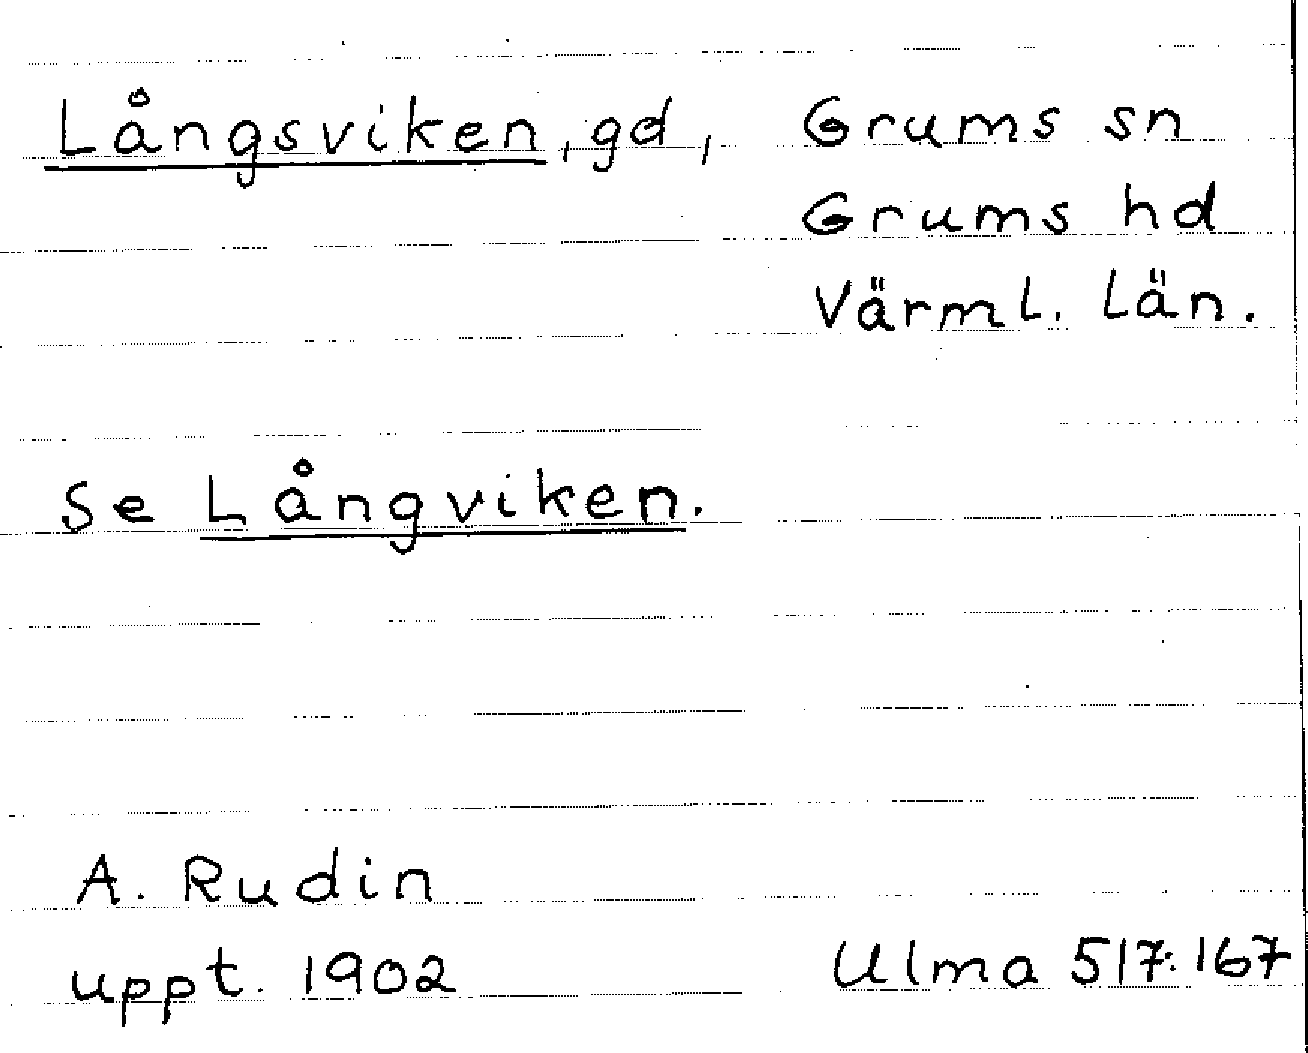 Långsviken, gd, Grums sn
Grums hd
Värml. län.
Se Långviken.
A. Rudin
uppt. 1902 Ulma 517:167